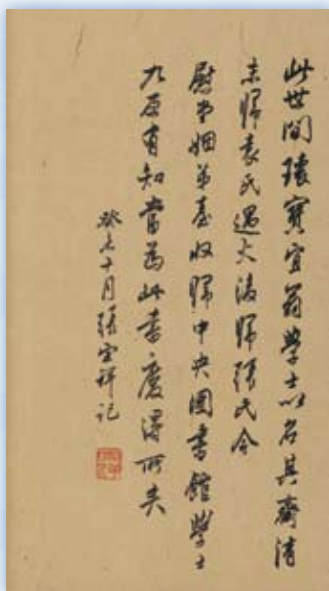 此世間瓌寶宜翁學士以名其齋清
末歸袁氏遇火後歸張氏今
慰堂姻弟臺收歸中央圖書館學士
九原有知當為此書慶得所矣
癸未十月張宗祥記